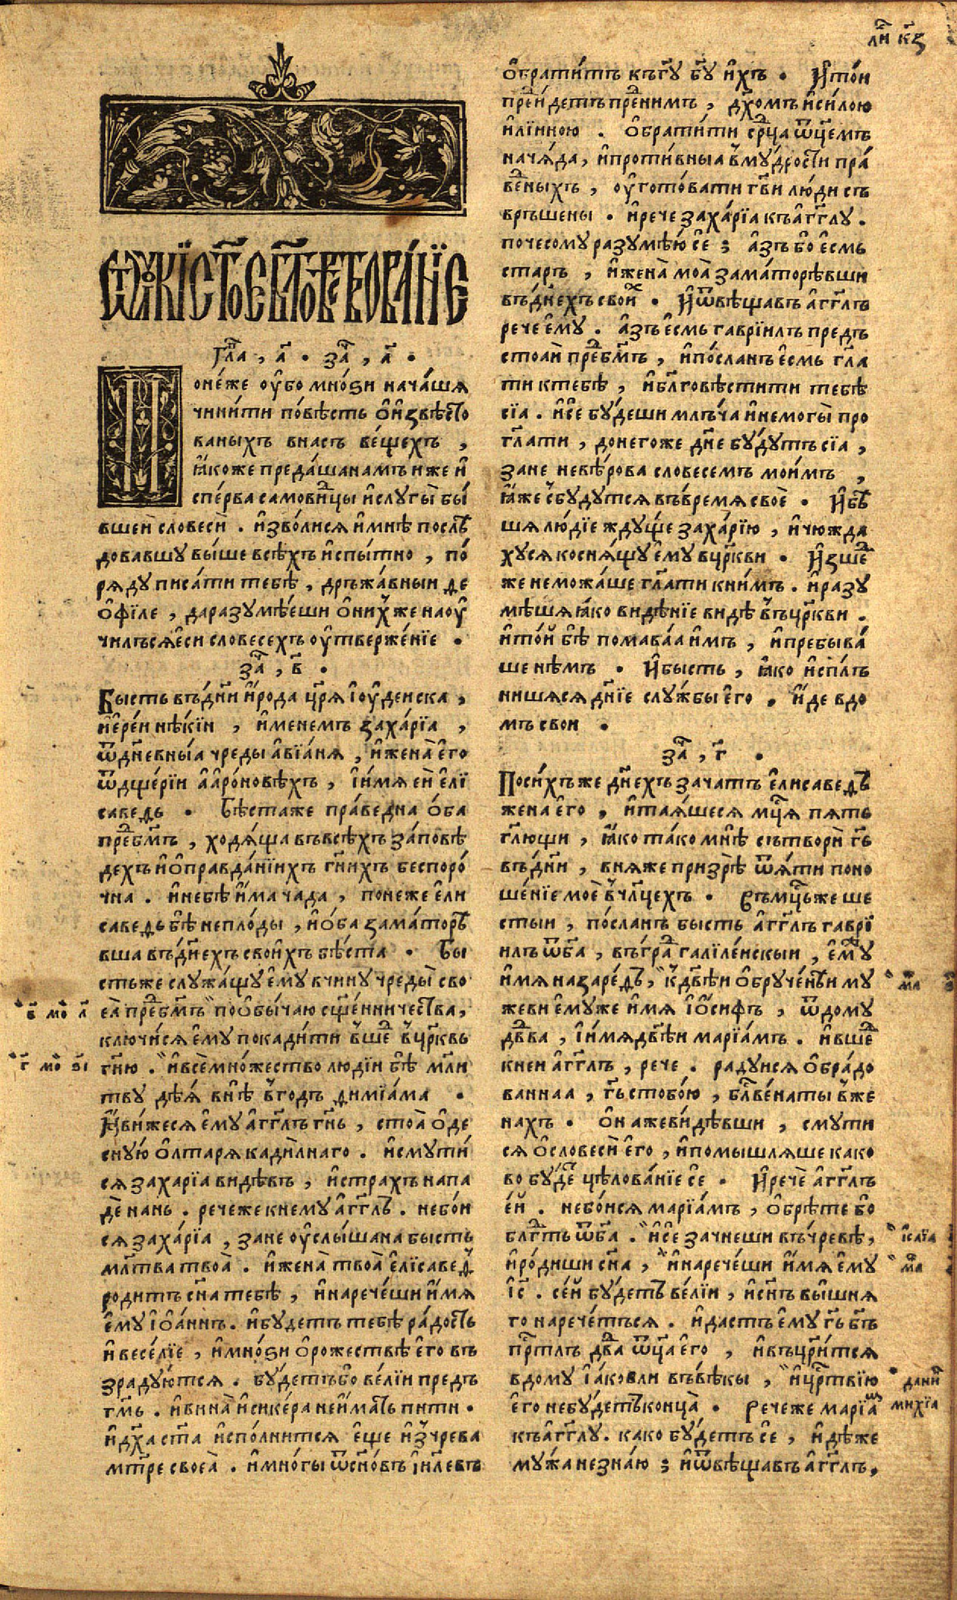 ли́ к҃з
Ѿ лꙋкѝ ст҃ое бл҃говѣствова́нїе
гла҃ , а҃ . за҃ , а҃ .
Поне́же ᲂу҆́бо мно́ѕи нача́шѧ
чини́ти по́вѣсть ѡ҆ и҆звѣсто
ваныхъ внасъ ве́щехъ ,
ꙗ҆́коже преда́шанамъ иже и҆
спе́рва самови҃цы и҆слꙋгы̀ бы́
вшеи словесѝ . и҆зво́лисѧ и҆мнѣ̀ послѣ
довавшꙋ вы́ше всѣ́хъ и҆спы́тно , по́
рѧдꙋ писа́ти тебѣ̀ , дръжа́вныи ѳе
ѡ҆́філе , даразꙋмѣ́еши ѡ҆ни́хже наѹ҆
чи́лъсѧе҆сѝ словесехъ ᲂу҆твержéнїе .
за҃ , в҃ .
Бысть въдн҃и и҆́рода цр҃ѧ і҆ꙋдеиска ,
и҆ере́и нѣ́кїи , и҆́менемъ заха́рїа ,
ѿдне́вныѧ чреды̀ авїа́нѧ , и҆жена̀ е҆го̀
ѿдще́рїи а҆аро́новѣхъ , і҆́мѧ е҆и̂ е҆лї
саведь . бѣ́стаже пра́ведна о҆́ба
пре́дбг҃мъ , ходѧ́ща въвсѣ́хъ за́повѣ
дехъ и҆ѡ҆правда́нїихъ гн҃ихъ беспоро́
чна . и҆небѣ̀ и҆́ма ча́да , понеже е҆ли
саведь бѣ̀ непло́ды , и҆о҆́ба замато́рѣ
вша въдн҃ехъ свои́хъ бѣ́ста . Бы
стьже слꙋжа́щꙋ е҆мꙋ̀ вчинꙋ̀ чреды̀ сво
еѧ̀ пре́дбг҃мъ поѡ҆бы́чаю сщ҃е́нничества ,
ключи́сѧ е҆мꙋ̀ покади́ти вше́д вцр҃ковь
гн҃ю . и҆всѐ мно́жество людїи бѣ̀ мл҃и
твꙋ дѣ́ѧ внѣ̀ вгодъ ѳимїа́ма .
Ꙗ҆ви́жесѧ е҆мꙋ̀ агг҃лъ гн҃ь , стоѧ̀ ѡ҆де
снꙋ́ю о҆лтарѧ̀ кади́лнаго . и҆смꙋти́
сѧ заха́рїа ви́дѣвъ , и҆стра́хъ напа
дѐ нань . рече́же кнемꙋ̀ агг҃лъ . небо́и
сѧ заха́рїа , занѐ ᲂу҆слы́шана бысть
мл҃тва твоѧ̀ . и҆жена̀ твоѧ̀ е҆лїсаведь
роди́тъ сн҃а тебѣ̀ , и҆нарече́ши и҆́мѧ
е҆мꙋ̀ і҆ѡа́ннъ . и҆бꙋ́детъ тебѣ̀ ра́дость
и҆ весе́лїе , и҆мно́ѕи ѡ҆рожествѣ̀ е҆го̀ въ
зра́дꙋютсѧ . бꙋ́детъбо ве́лїи предъ
гм҃ь . и҆вина̀ и҆сике́ра неи҆́мать пи́ти .
и҆дх҃а ст҃а и҆спо́лнитсѧ е҆ще и҆зчрева
мт҃ре своеѧ̀ . и҆мно́гы ѿсн҃о́въ і҆и҃левъ
ѡ҆братитъ къгу҃ бг҃ꙋ и҆́хъ . И҆то́и
пре́идетъ пред̾нимъ , дх҃омъ и҆си́лою
и҆лїи́ною . ѡ҆брати́ти ср҃ца ѿц҃емъ
нача́да , и҆проти́вныѧ вмꙋ́дрости пра́
веныхъ , ᲂу҆гото́вати гв҃и лю́ди съ
връшены . и҆рече заха́рїа къагг҃лꙋ .
почесомꙋ разꙋмѣ́ю сѐ ; а҆́зъ бо е҆смь
старъ , и҆жена̀ моѧ̀ замато́рѣвши
въдн҃ехъ свои́х . И҆ѿвѣща́въ агг҃лъ
рече е҆мꙋ̀ . а҆́зъ е҆смь гаврїи́лъ предъ
стоѧи пре́дбг҃мъ , и҆по́сланъ е҆смь гл҃а
ти ктебѣ̀ , и҆бл҃говѣ́стити тебѣ̀
сїѧ . и҆сѐ бꙋ́деши млъча̀ и҆немогы̀ про
гл҃ати , донегоже дн҃е бꙋ́дꙋтъ сїѧ ,
занѐ невѣ́рова словесемъ мои́мъ ,
ꙗ҆́же сбꙋ́дꙋтсѧ въвре́мѧ своѐ . И҆бѣ
шѧ лю́дїе ждꙋ́ще заха́рїю , и҆чюжда
хꙋсѧ коснѧ́щꙋ е҆мꙋ̀ вцр҃кви . И҆зше́д
же неможа́ше гл҃ати кни́мъ . и҆разꙋ
мѣ́шѧ ꙗ҆́ко видѣ́нїе видѣ̀ въцр҃кви .
и҆то́и бѣ̀ помава́ѧ и҆мъ , и҆пребыва́
ше нѣ́мъ . И҆бысть , ꙗ҆́ко и҆спо́лъ
нишѧсѧ дн҃їе слꙋ́жбы е҆го̀ , и҆́де вдо
мъ сво́и .
за҃ , г҃ .
Поси́хъже дн҃ехъ зача́тъ е҆лисаведь
жена̀ е҆го̀ , и҆таѧ́шесѧ мц҃а пѧть
гл҃ющи , ꙗ҆́ко та́ко мнѣ̀ сътворѝ гь҃
въдн҃и , внѧже призрѣ̀ ѿѧ́ти поно
ше́нїе моѐ вчл҃цехъ . Въмц҃ьже ше
стыи , по́сланъ бысть агг҃лъ гаврї
илъ ѿбг҃а , въгра́д галїле́искыи , е҆мꙋ́
и҆́мѧ назаре́дъ , кдв҃ѣи ѡ҆брꙋче́нѣи мꙋ́
жеви е҆мꙋже и҆́мѧ і҆ѡ́сифъ , ѿдомꙋ
дв҃ва , і҆́мѧдв҃ѣи марїа́мъ . и҆вше́д
кнеи агг҃лъ , рече . ра́дꙋисѧ ѡ҆бра́до
ваннаѧ , гь҃ стобо́ю , бл҃ве́на ты̀ вже
на́хъ . Ѻ҆на́жеви́дѣвши , смꙋти
сѧ ѡ҆словесѝ е҆го̀ , и҆помышлѧше како
во бꙋ́дет цѣлова́нїе се . И҆речѐ агг҃лъ
е҆́и . небо́исѧ марїа́мъ , ѡ҆брѣ́те бо
бл҃гть ѿбг҃а . и҆сѐ зачне́ши въчре́вѣ ,
и҆роди́ши сн҃а , и҆нарече́ши и҆́мѧ е҆мꙋ
і҆с҃ . се́и бꙋ́детъ ве́лїи , и҆сн҃ъ вы́шнѧ
го нарече́тсѧ . и҆да́стъ е҆мꙋ̀ гь҃ бг҃ъ
пр҃тлъ дв҃а ѿц҃а е҆го̀ , и҆въцр҃и́тсѧ
вдомꙋ̀ і҆а́ковли въвѣ́кы , и҆цр҃твїю
е҆го̀ небꙋ́детъ конца̀ . Рече́же марїа́м
къагг҃лꙋ . ка́ко бꙋ́детъ се , и҆дѣ́же
мꙋ́жа незна́ю ; и҆ѿвѣща́въ агг҃лъ ,
в҃ мо л҃
г҃ мо ѕ҃і
ма
і҆са́їа
ма
дани
михїа